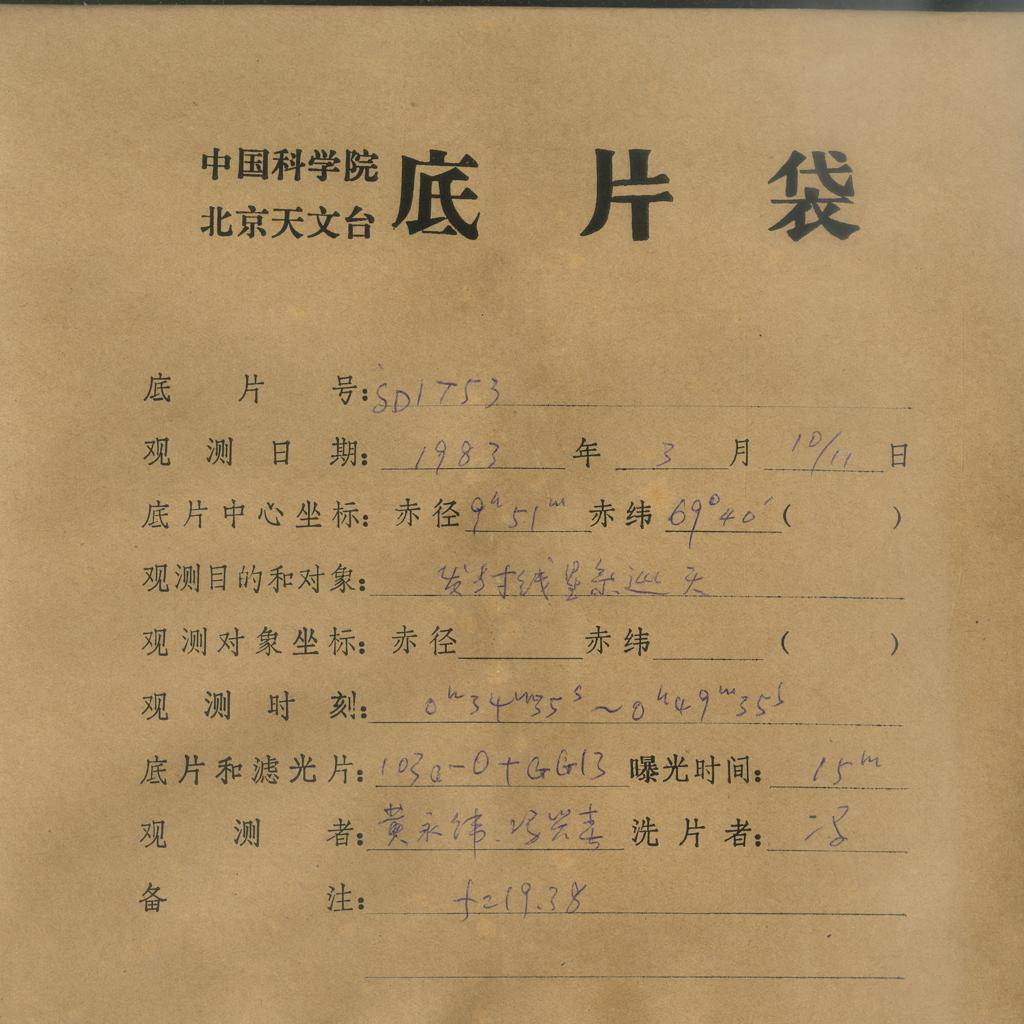 中国科学院
北京天文台
底片袋
底片号:SD1753
观测日期:1983年3月10/11日
底片中心坐标:赤径9h51m赤纬69°40′( )
观测目的和对象:发射线星系巡天
观测对象坐标:赤径 赤纬 ( )
观测时刻:0h34m35s~0h49m35s
底片和滤光片:103a-O+GG13 曝光时间:15m
观测者:黄永伟.冯兴春 洗片者:冯
备注:f=19.38